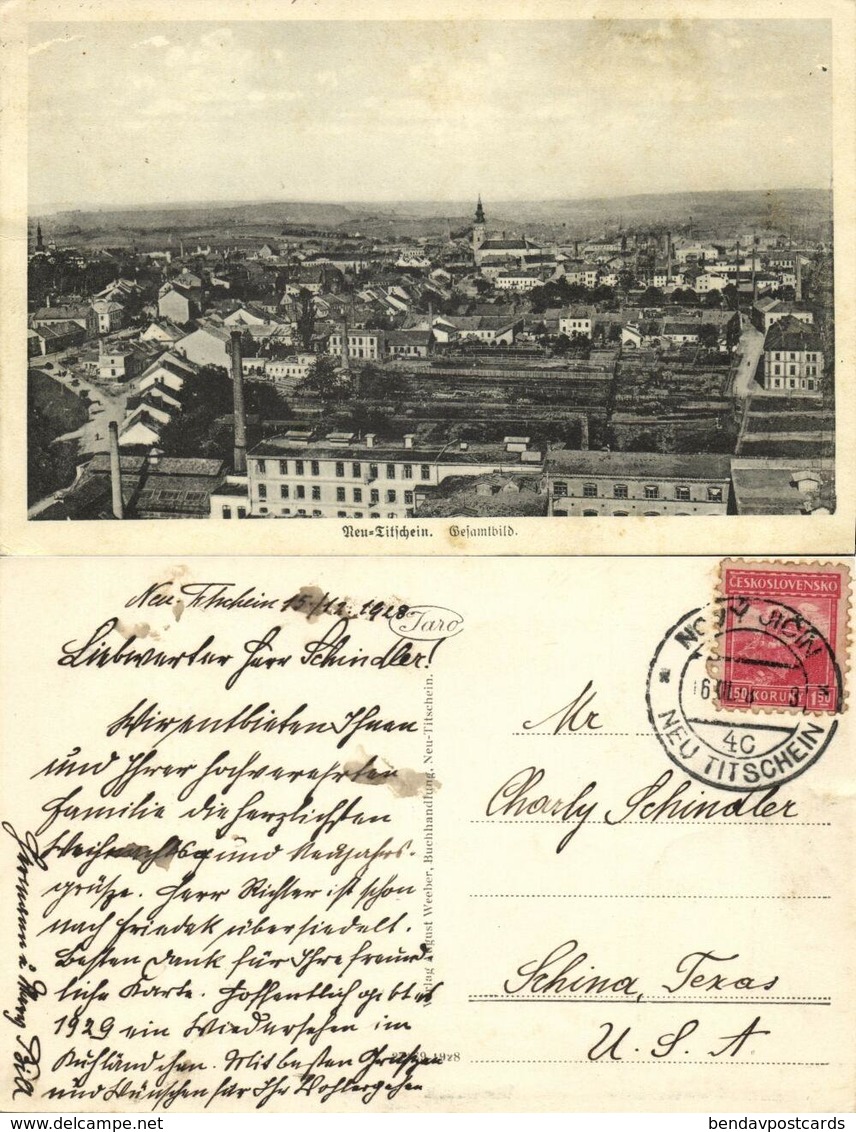 Neu-Titschein. Gesamtbild.
Neu-Titschein 15./12. 1928
Taro
Liebwerter Herr Schindler!
Wir entbieten Ihnen
und Ihrer hochverehrten
Familie die herzlichsten
Weihnachts und Neujahrs-
grüsze. Herr Richter ist schon
nach Friedek übersiedelt.
Besten Dank für Ihre freund
liche Karte. Hoffentlich gibt es
1929 ein Wiedersehen im
Kuhländchen. Mit besten Grüszen
und Wünschen für Ihr Wohlergehen
Hermann u. Mary
Verlag August Weeber, Buchhandlung, Neu-Titschein.
1928
ČESKOSLOVENSKO
1.50 KORUNY 1.50
NOVÝ JIČÍN
4c
NEU TITSCHEIN
Mr
Charly Schindler
Schina, Texas
U. S. A
bendavpostcards